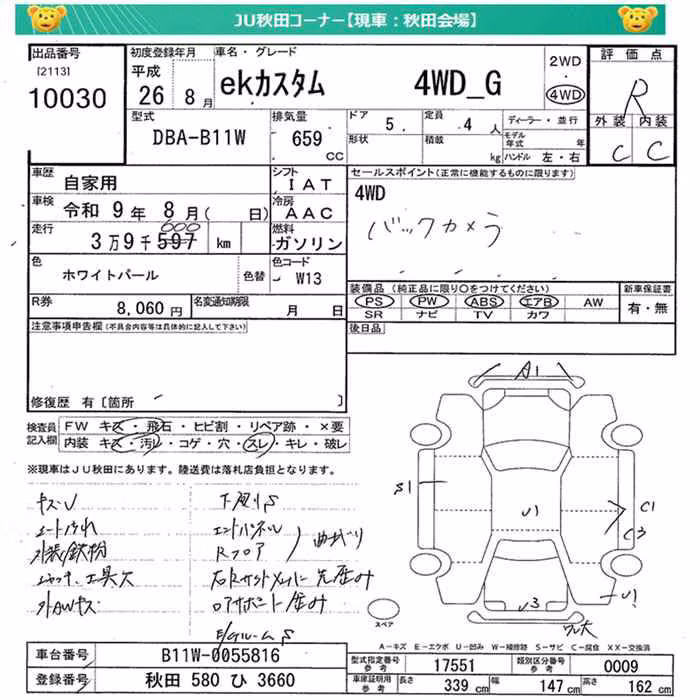 JU秋田コーナー【現車：秋田会場】
出品番号
[2113]
10030
初度登録年月
平成
26 8月
車名・グレード
ekカスタム 4WD_G
2WD
4WD
評価点
R
外装 内装
C C
型式
DBA-B11W
排気量
659 CC
ドア 5
定員 4 人
形状
積載 kg
ディーラー・並行
モデル年式 年
ハンドル 左・右
車歴
自家用
シフト
IAT
車検 令和 9年 8月( 日)
冷房
AAC
走行
600
3万9千597 km
燃料
ガソリン
色
ホワイトパール
色替
色コード
W13
R券
8,060円
名変通知期限
月 日
セールスポイント(正常に機能するものに限ります)
4WD
バックカメラ
装備品 (純正品に限り○をつけてください)
PS PW ABS エアB AW
SR ナビ TV カワ
新車保証書
有・無
後日品
注意事項申告欄(不具合内容等は具体的に記入して下さい)
修復歴 有〔箇所 〕
検査員記入欄
FW キズ・飛石・ヒビ割・リペア跡・×要
内装 キズ・汚レ・コゲ・穴・スレ・キレ・破レ
※現車はJU秋田にあります。陸送費は落札店負担となります。
キズU
シート汚れ
外装鉄粉
ジャッキ、工具欠
外AWキズ
下廻りS
エンドパネル
Rフロア
曲がり
A1
S1
U1
C1
C3
U3
U1
スペア
A－キズ E－エクボ U－凹み W－補修跡 S－サビ C－腐食 XX－交換済
車台番号
B11W-0055816
登録番号
秋田 580 ひ 3660
型式指定番号 参考
17551
類別区分番号 参考
0009
車庫証明用 参考
長さ 339 cm
幅 147 cm
高さ 162 cm